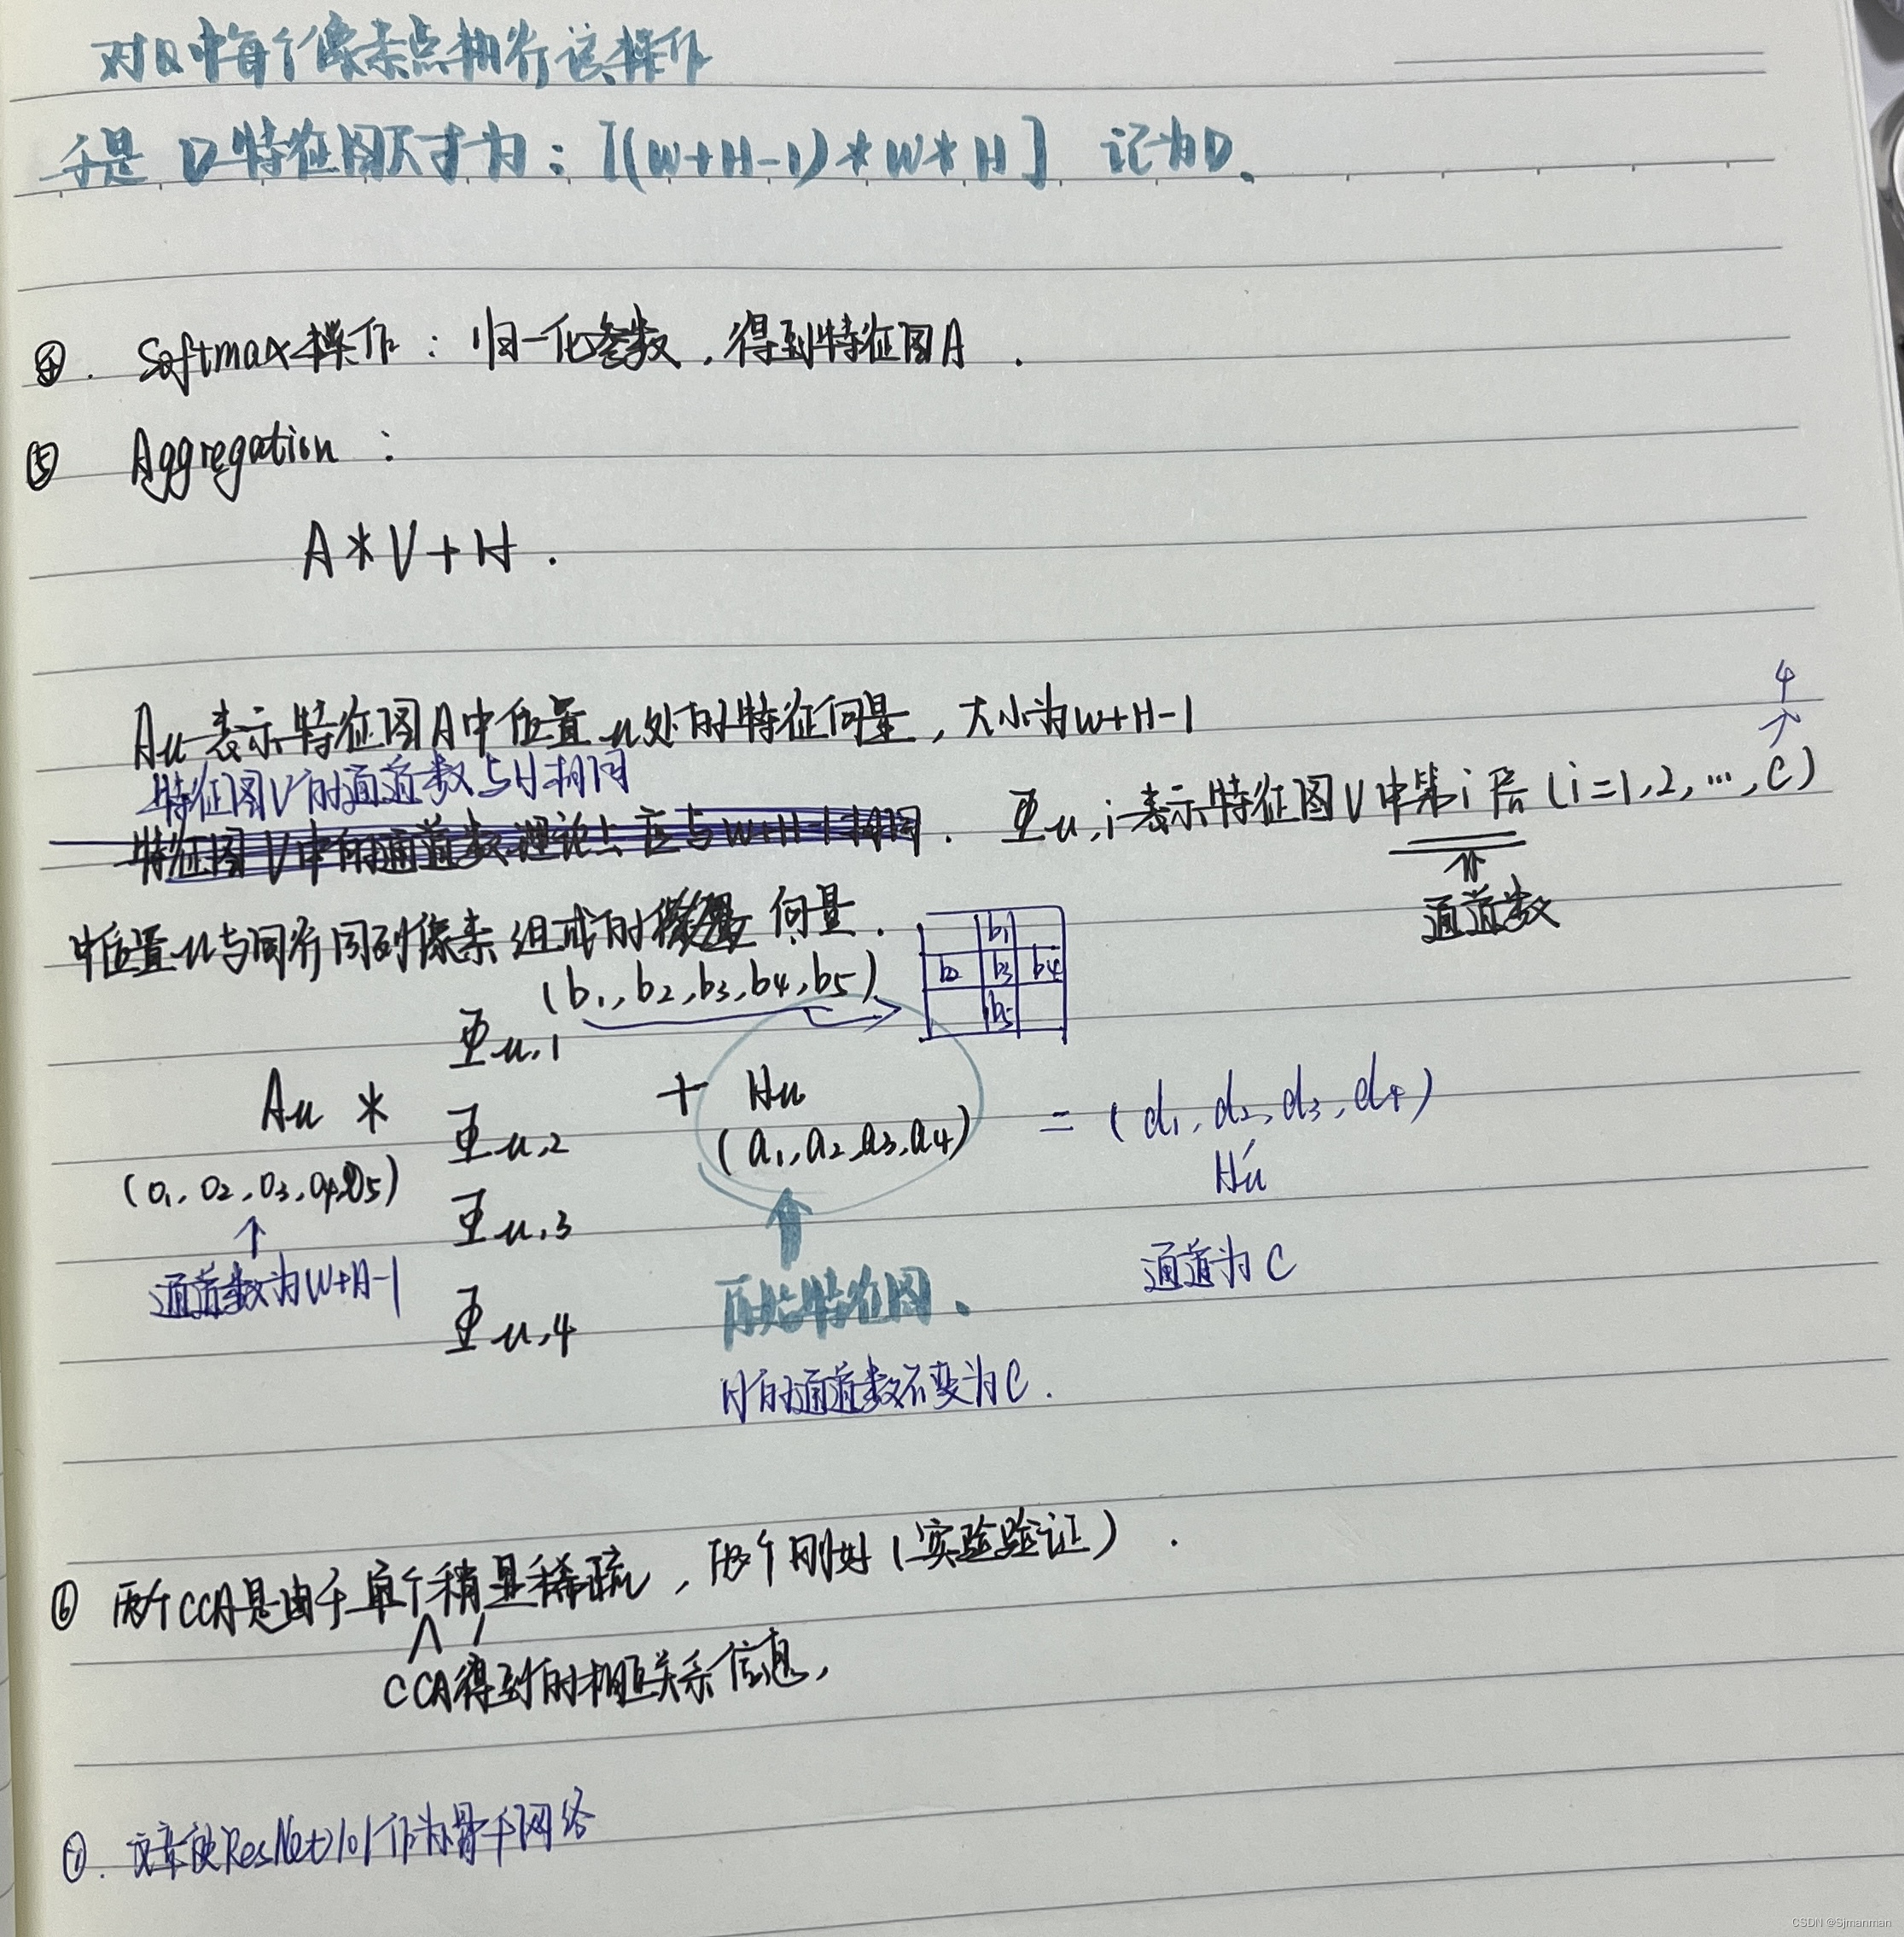 对Q中每个像素点执行该操作
于是 D特征图尺寸为：[(W+H-1)*W*H] 记为D。
④. Softmax操作：归一化参数，得到特征图A.
⑤ Aggregation：
A*V+H.
Au表示特征图A中位置u处的特征向量，大小为W+H-1
4
特征图V的通道数与H相同
特征图V中的通道数理论上应与W+H-1相同. 亚u,i表示特征图V中第i层(i=1,2,…,C)
通道数
中位置u与同行同列像素组成的 向量.
b1
b2 b3 b4
b5
(b1,b2,b3,b4,b5)
亚u,1
Au * 亚u,2 + Hu = (d1,d2,d3,d4)
(a1,a2,a3,a4)
H'u
(a1,a2,a3,a4,a5)
亚u,3
通道数为W+H-1
原始特征图.
通道为C
亚u,4
H的通道数不变为C.
⑥ 两个CCA是由于单个稍显稀疏，两个刚好(实验验证).
CCA得到的相互关系信息，
⑦. 文章使ResNet101作为骨干网络
CSDN @Sjmanman